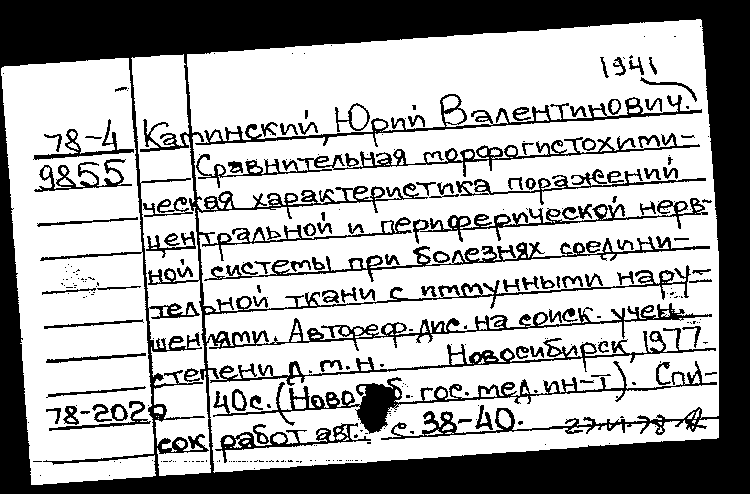 1941
78-4 Катинский, Юрий Валентинович.
9855 Сравнительная морфогистохими-
ческая характеристика поражений
центральной и периферической нерв-
ной системы при болезнях соедини-
тельной ткани с иммунными нару-
шениями. Автореф. дис. на соиск. учен.
степени д.м.н. Новосибирск, 1977.
78-2020 40с. (Новосиб. гос. мед. ин-т). Спи-
сок работ авт.: с. 38-40.